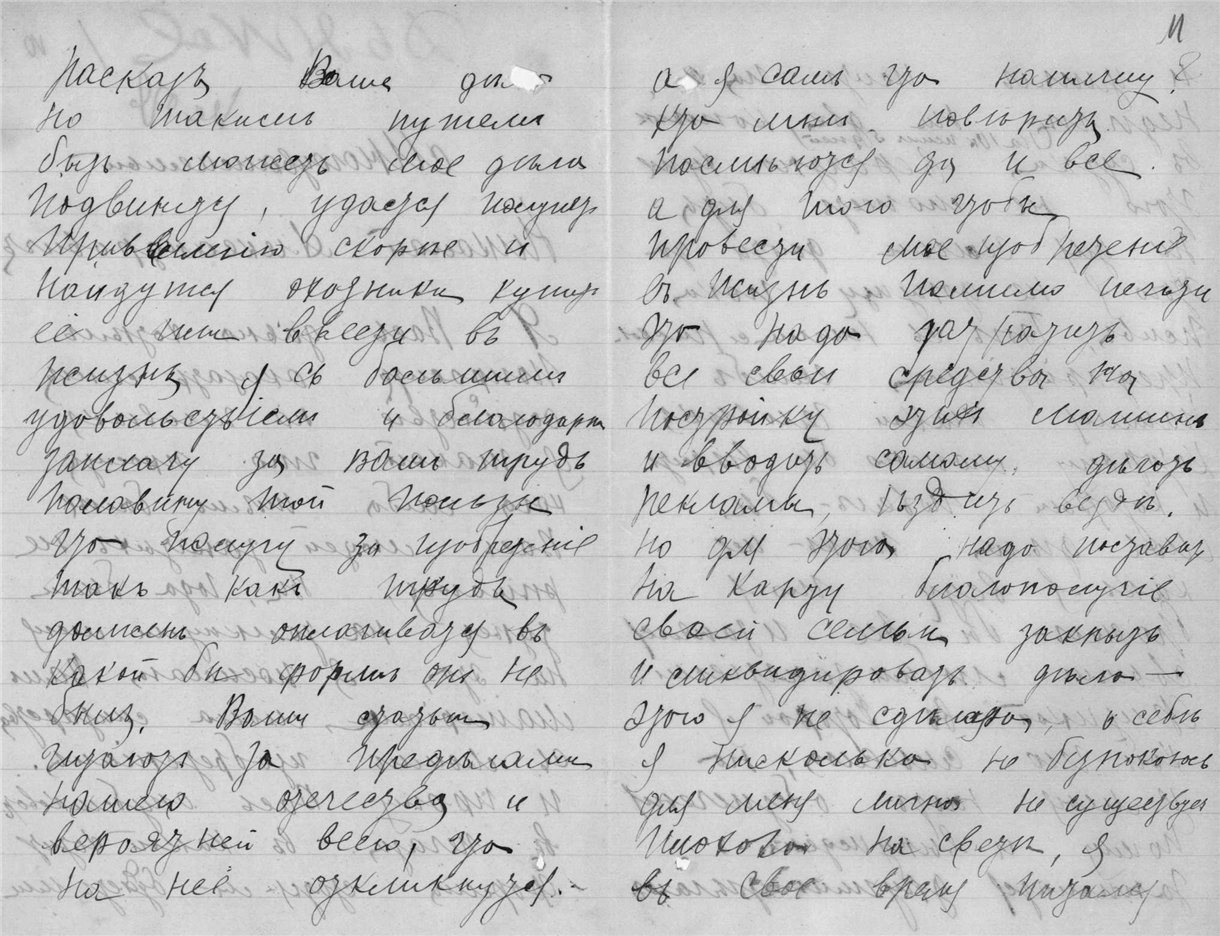 расказъ Ваше дело
но такимъ путемъ
быть можетъ мое дело
подвинется, удастся получ
привелегію скорее и
найдутся охотники купить
её или ввести въ
жизнь, я съ большимъ
удовольствіем и благодарн
заплачу за вашъ трудъ
половину той пользы
что получу за изобретеніе
такъ какъ трудъ
должен оплачиваться въ
какой бы форме онъ не
былъ. Ваши статьи
читают за пределами
нашего отечества и
вероятней всего, что
на неё откликнутся.
11
а я самъ что напишу?
кто мне поверитъ
посмеются да и все.
а для того чтобы
провести мое изобретеніе
въ жизнь помимо печати
то надо затратить
все свои средства на
постройку этих машинъ
и вводить самому, делать
рекламы, ездить везде,
но для этого надо поставить
на карту благополучіе
своей семьи закрыть
и ликвидировать дело —
этого я не сделаю, о себе
я нисколько не безпокоюсь
для меня лично не существует
плохова на свете, я
въ свое время питался